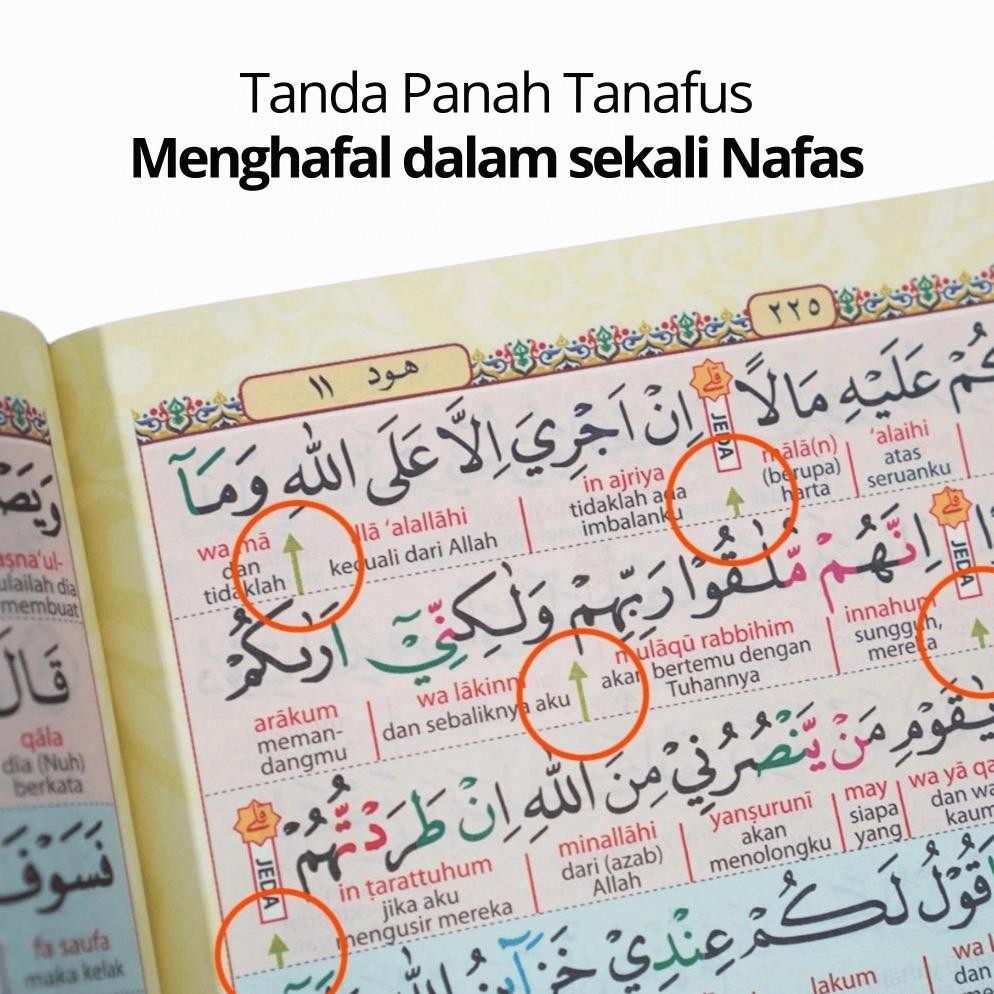 Tanda Panah Tanafus
Menghafal dalam sekali Nafas
٢٢٥
هود ١١
كُمْ عَلَيْهِ مَالًا قلے اِنْ اَجْرِيَ اِلَّا عَلَى اللّٰهِ وَمَآ
JEDA
'alaihi
atas
seruanku
mālā(n)
(berupa)
harta
in ajriya
tidaklah ada
imbalanku
illā 'alallāhi
kecuali dari Allah
wa mā
dan
tidaklah
قلے اِنَّهُمْ مُّلٰقُوْا رَبِّهِمْ وَلٰكِنِّيْٓ اَرٰىكُمْ
JEDA
innahum
sungguh,
mereka
mulāqū rabbihim
akan bertemu dengan
Tuhannya
wa lākinnī
dan sebaliknya aku
arākum
meman-
dangmu
يٰقَوْمِ مَنْ يَّنْصُرُنِيْ مِنَ اللّٰهِ اِنْ طَرَدْتُّهُمْ قلے
JEDA
wa yā qa
dan wa
kaum
may
siapa
yang
yanṣurunī
akan
menolongku
minallāhi
dari (azab)
Allah
in ṭarattuhum
jika aku
mengusir mereka
اَقُوْلُ لَكُمْ عِنْدِيْ خَزَاۤىِٕنُ اللّٰهِ
lakum
wa l
dan
وَيَصْ
aṣna'ul-
ulailah dia
membuat
قَالَ
qāla
dia (Nuh)
berkata
فَسَوْفَ
fa saufa
maka kelak